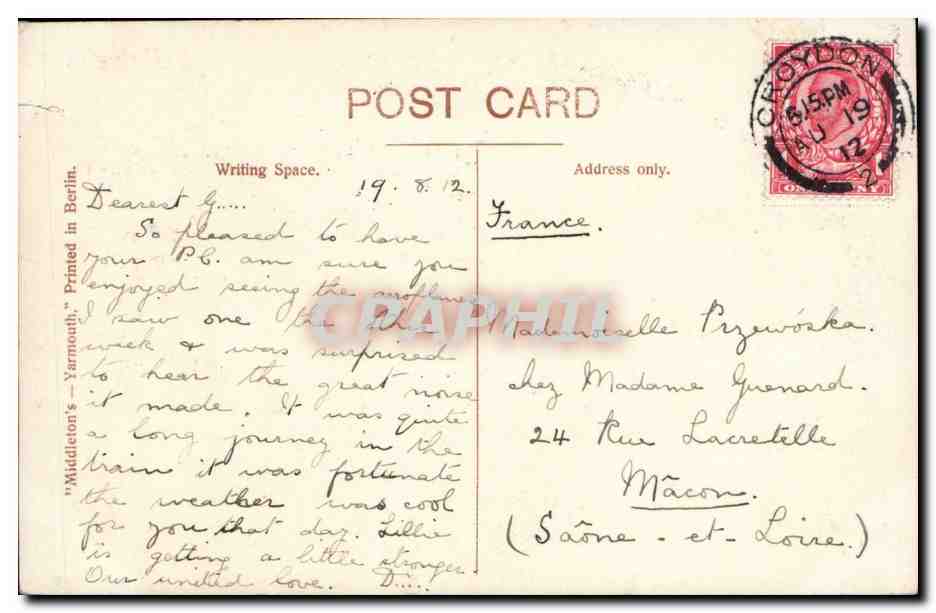 POST CARD
Writing Space.
Address only.
"Middleton's — Yarmouth," Printed in Berlin.
CROYDON
6.15.PM
AU 19
12
2
19. 8. 12.
Dearest G.....
So pleased to have
your P.C. am sure you
enjoyed seeing the aroplanes
I saw one the other
week & was surprised
to hear the great noise
it made. It was quite
a long journey in the
train it was fortunate
the weather was cool
for you that day. Lillie
is getting a little stronger.
Our united love. D.....
France.
Mademoiselle Przewóska.
chez Madame Guenard.
24 Rue Lacretelle
Mâcon.
(Saône - et - Loire.)
CPAPHIL